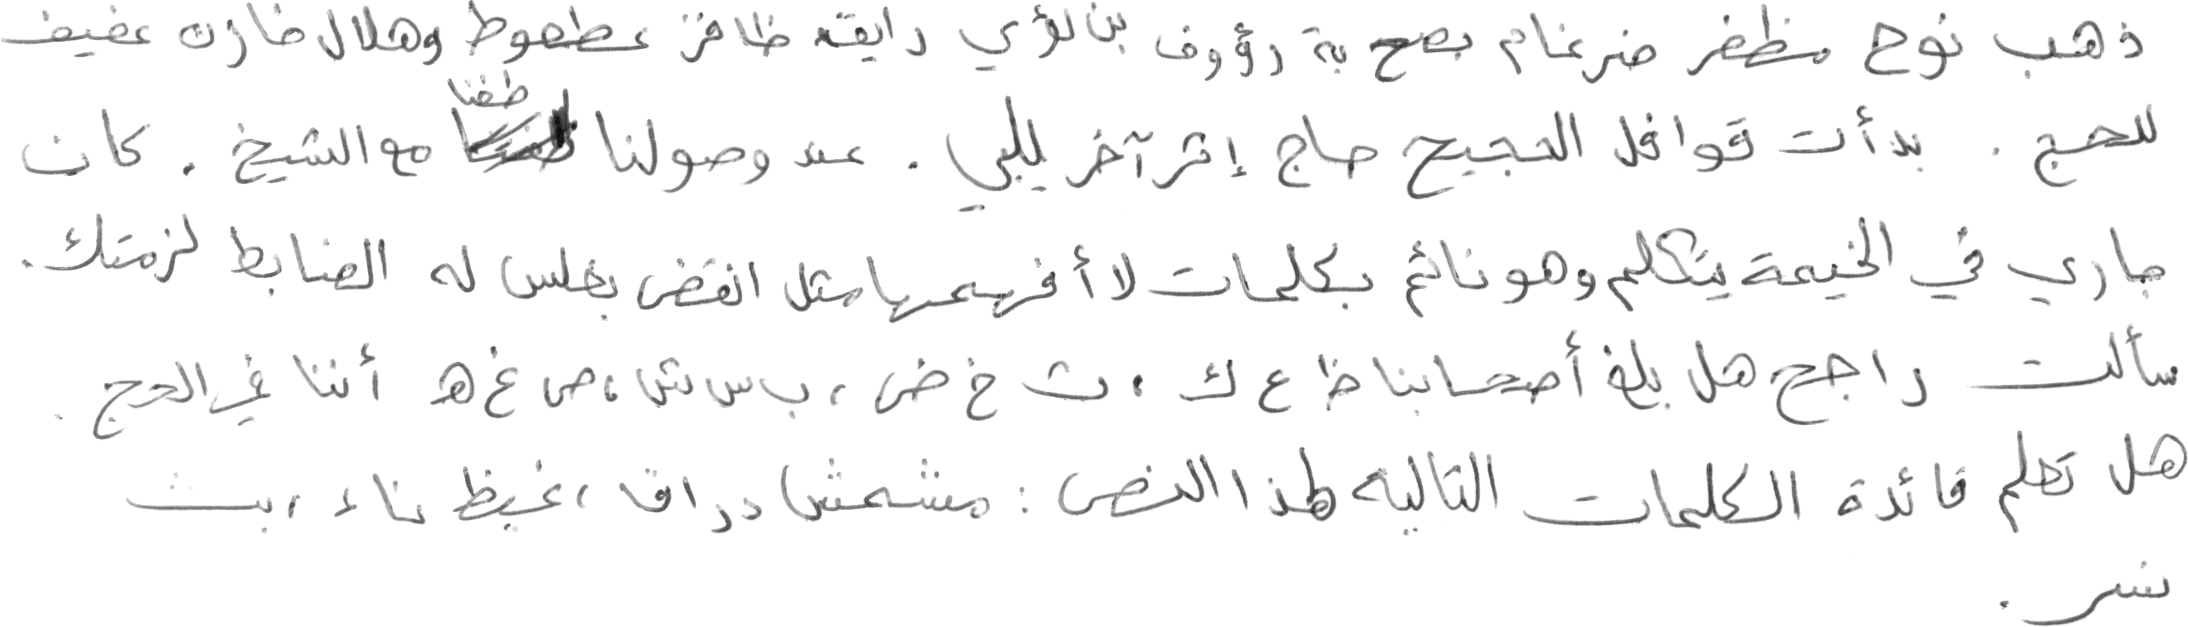 ذهب نوح مظفر ضرغام بصحبة رؤوف بن لؤي رايقه ظافر عطعوط وهلال خازن عفيف
للحج . بدأت قوافل الحجيج حاج إثر آخر يلبي . عند وصولنا طفنا مع الشيخ . كان
جاري في الخيمة يتكلم وهو نائم بكلمات لا أفهمها مثل انقض بغلس له الضابط لزمتك .
سألت راجح هل بلغ أصحابنا ظ ع ك ، ث خ ض ، ب س ش ، ص غ هـ أننا في الحج .
هل تعلم فائدة الكلمات التاليه لهذا النص : مشمش دراق ، غيظ ناء ، بث
نسر .